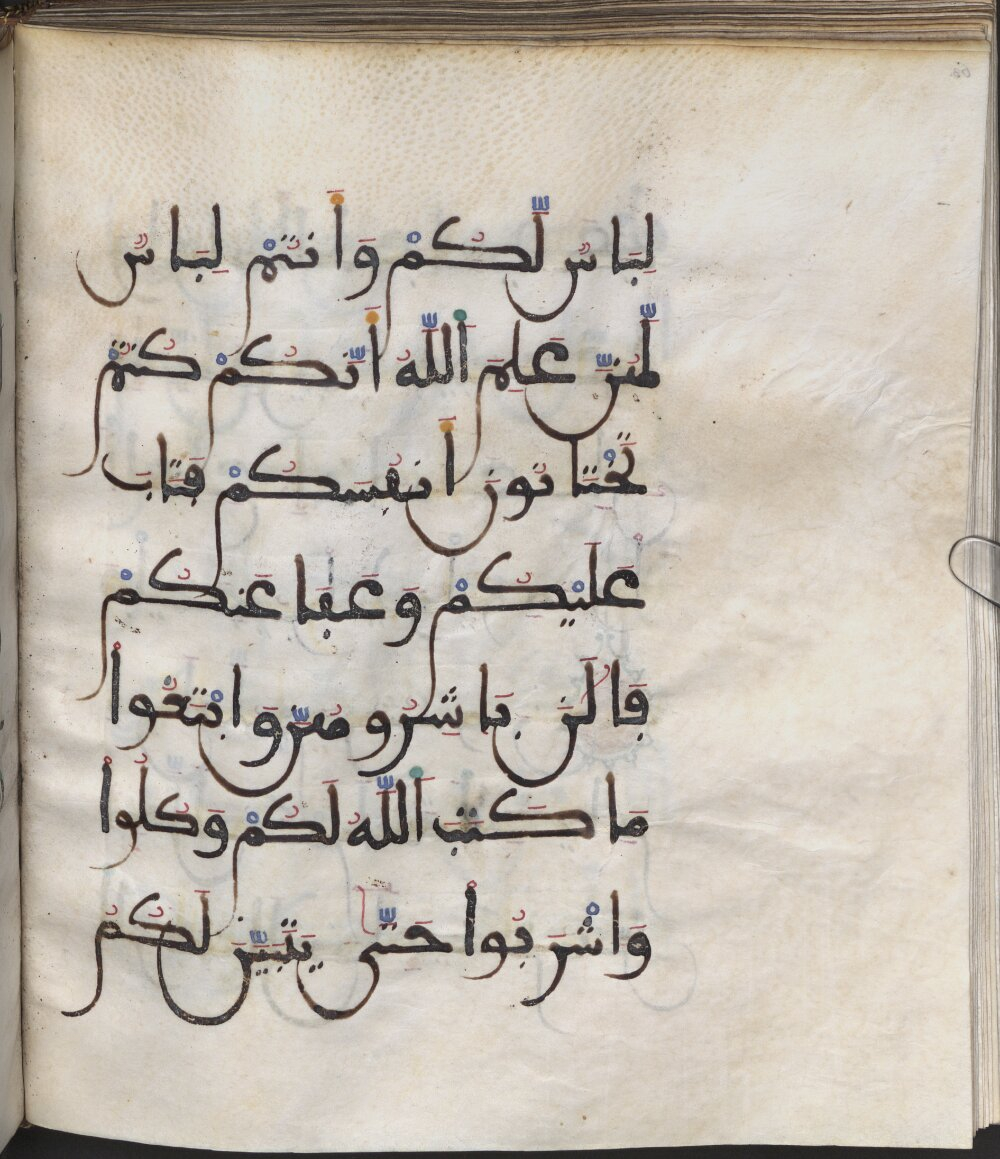 لِبَاسٌ لَّكُمْ وَأَنتُمْ لِبَاسٌ
لَّهُنَّ عَلِمَ اَللَّهُ أَنَّكُمْ كُنتُمْ
تَخْتَانُونَ أَنفُسَكُمْ فَتَابَ
عَلَيْكُمْ وَعَفَا عَنكُمْ
فَالَنَ بَاشِرُوهُنَّ وَابْتَغُواْ
مَا كَتَبَ اَللَّهُ لَكُمْ وَكُلُواْ
وَاشْرَبُواْ حَتَّىٰ يَتَبَيَّنَ لَكُمُ